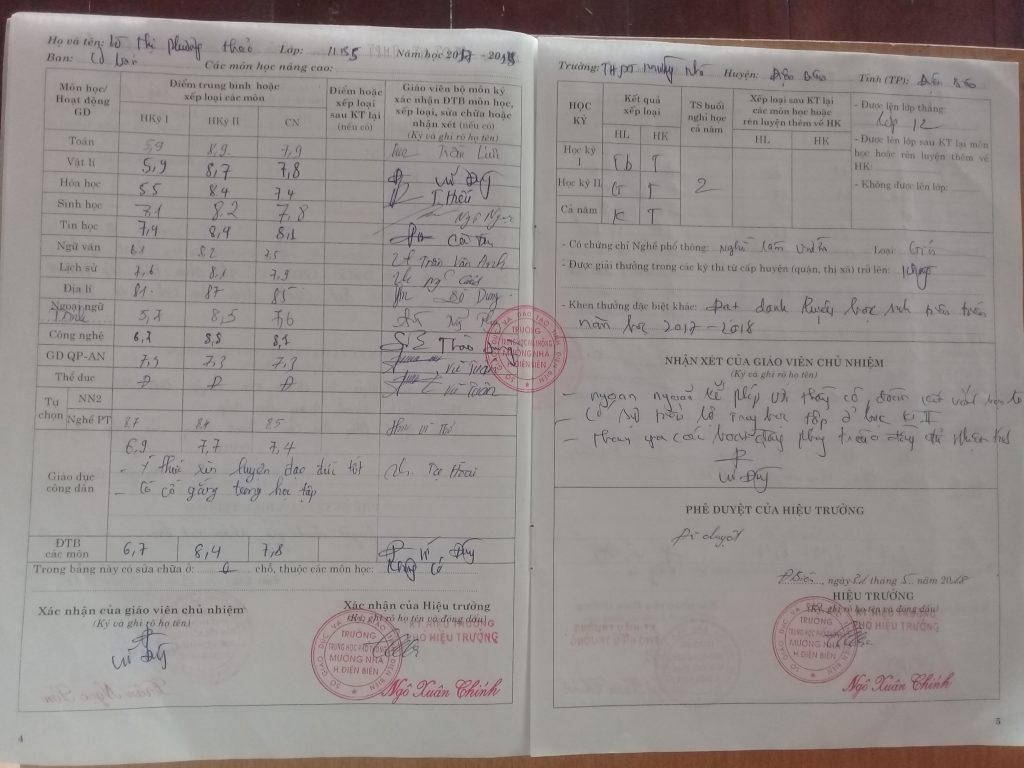 Họ và tên: Lò Thị Phương Thảo Lớp: 11B5 Năm học 2017 - 2018
Ban: Cơ bản Các môn học nâng cao:
Môn học/ Hoạt động GD
Điểm trung bình hoặc xếp loại các môn
HKỳ I HKỳ II CN
Điểm hoặc xếp loại sau KT lại (nếu có)
Giáo viên bộ môn ký xác nhận ĐTB môn học, sửa chữa hoặc nhận xét (nếu có)
(Ký và ghi rõ họ tên)
Toán 5,9 8,9 7,9
Vật lí 5,9 8,7 7,8 Vũ Duy
Hóa học 5,5 8,4 7,4
Sinh học 7,1 8,2 7,8
Tin học 7,4 8,4 8,1
Ngữ văn 6.1 8.2 7,5 Trần Vân Anh
Lịch sử 7,6 8,1 7,9
Địa lí 81 87 85 Dung
Ngoại ngữ 5,7 8,5 7,6
Công nghệ 6,7 8,8 8,1 Thảo
GD QP-AN 7,3 7,3 7,3
Thể dục Đ Đ Đ
Tự chọn
NN2
Nghề PT 8.7 8.4 8.5
Giáo dục công dân
6,9 7,7 7,4
- Ý thức rèn luyện đạo đức tốt Tạ Hoài
- Có cố gắng trong học tập
ĐTB các môn 6,7 8,4 7,8 Vũ Duy
Trong bảng này có sửa chữa ở: 0 chỗ, thuộc các môn học: Không có
Xác nhận của giáo viên chủ nhiệm
(Ký và ghi rõ họ tên)
Vũ Duy
Xác nhận của Hiệu trưởng
(Ký, ghi rõ họ tên và đóng dấu)
KT.HIỆU TRƯỞNG
PHÓ HIỆU TRƯỞNG
TRƯỜNG
TRUNG HỌC PHỔ THÔNG
MƯỜNG NHÀ
H.ĐIỆN BIÊN
Ngô Xuân Chính
4
Trường: THPT Mường Nhà Huyện: Điện Biên Tỉnh (TP): Điện Biên
HỌC KỲ
Kết quả xếp loại
HL HK
TS buổi nghỉ học cả năm
Xếp loại sau KT lại các môn học hoặc rèn luyện thêm về HK
HL HK
- Được lên lớp thẳng:
Lớp 12
- Được lên lớp sau KT lại môn học hoặc rèn luyện thêm về HK:
- Không được lên lớp:
Học kỳ I Tb T
Học kỳ II G T 2
Cả năm K T
- Có chứng chỉ Nghề phổ thông: Nghề làm vườn Loại: Giỏi
- Được giải thưởng trong các kỳ thi từ cấp huyện (quận, thị xã) trở lên: Không
- Khen thưởng đặc biệt khác: Đạt danh hiệu học sinh tiên tiến
năm học 2017 - 2018
NHẬN XÉT CỦA GIÁO VIÊN CHỦ NHIỆM
(Ký và ghi rõ họ tên)
- ngoan ngoãn lễ phép với thầy cô, đoàn kết với bạn bè
- Có sự tiến bộ trong học tập ở học kì II
- tham gia các hoạt động phong trào đầy đủ nhiệt tình
Vũ Duy
PHÊ DUYỆT CỦA HIỆU TRƯỞNG
Phê duyệt
Đ.Biên, ngày 31 tháng 5 năm 2018
HIỆU TRƯỞNG
(Ký, ghi rõ họ tên và đóng dấu)
KT.HIỆU TRƯỞNG
PHÓ HIỆU TRƯỞNG
TRƯỜNG
TRUNG HỌC PHỔ THÔNG
MƯỜNG NHÀ
H.ĐIỆN BIÊN
Ngô Xuân Chính
5